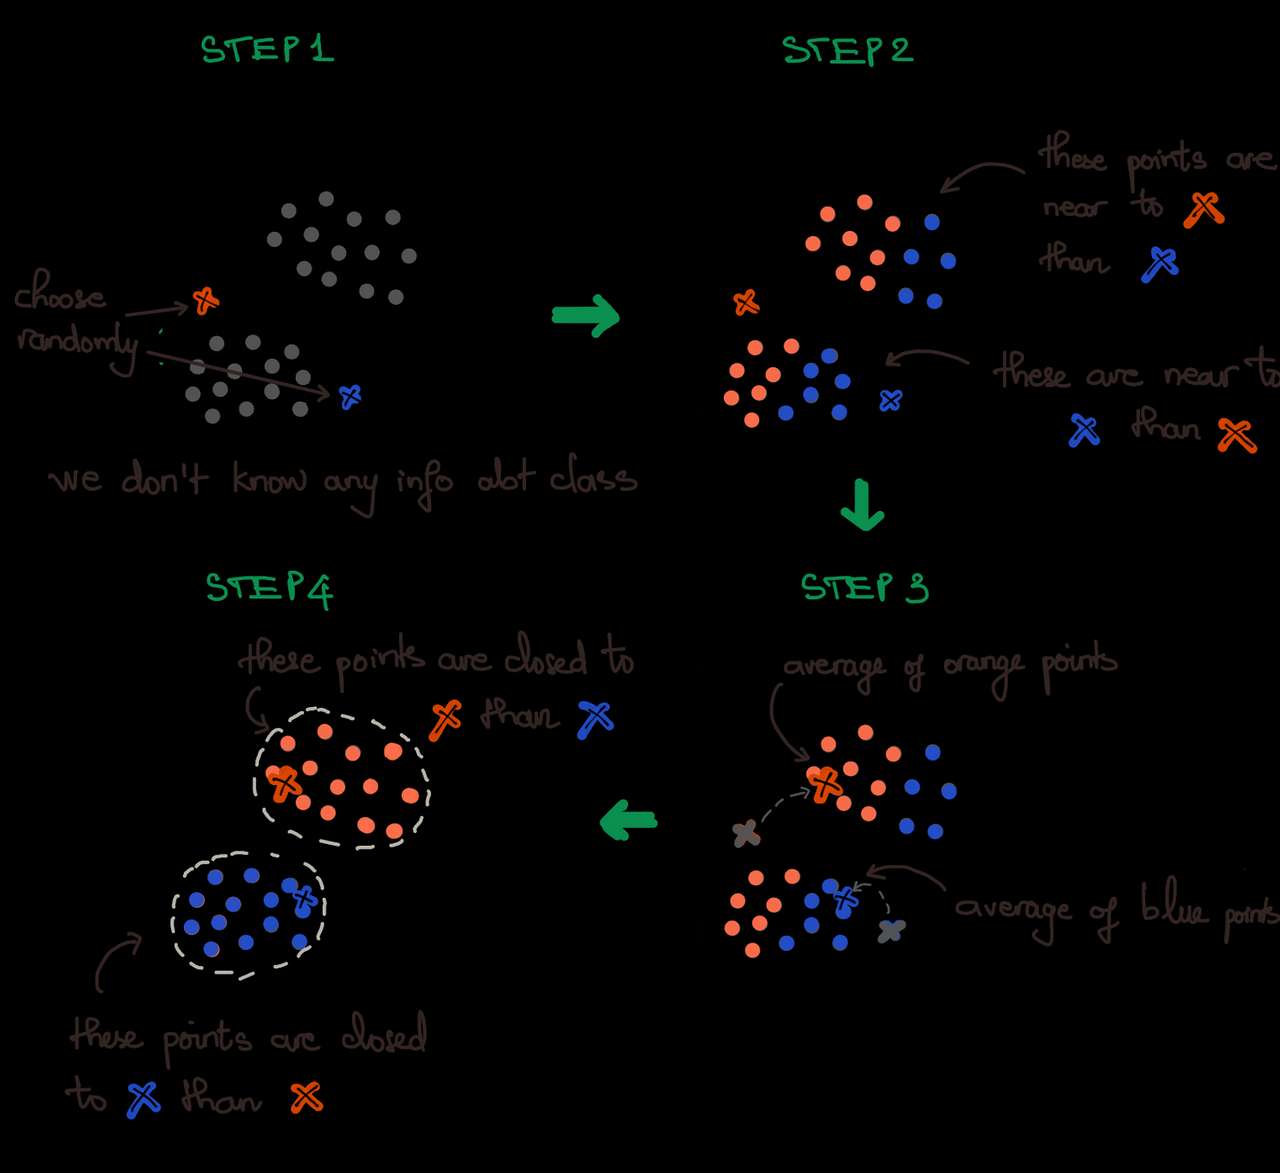 STEP 1
choose
randomly
we don't know any info abt class
STEP 2
these points are
near to
than
these are near to
than
STEP 3
average of orange points
average of blue points
STEP 4
these points are closed to
than
these points are closed
to than